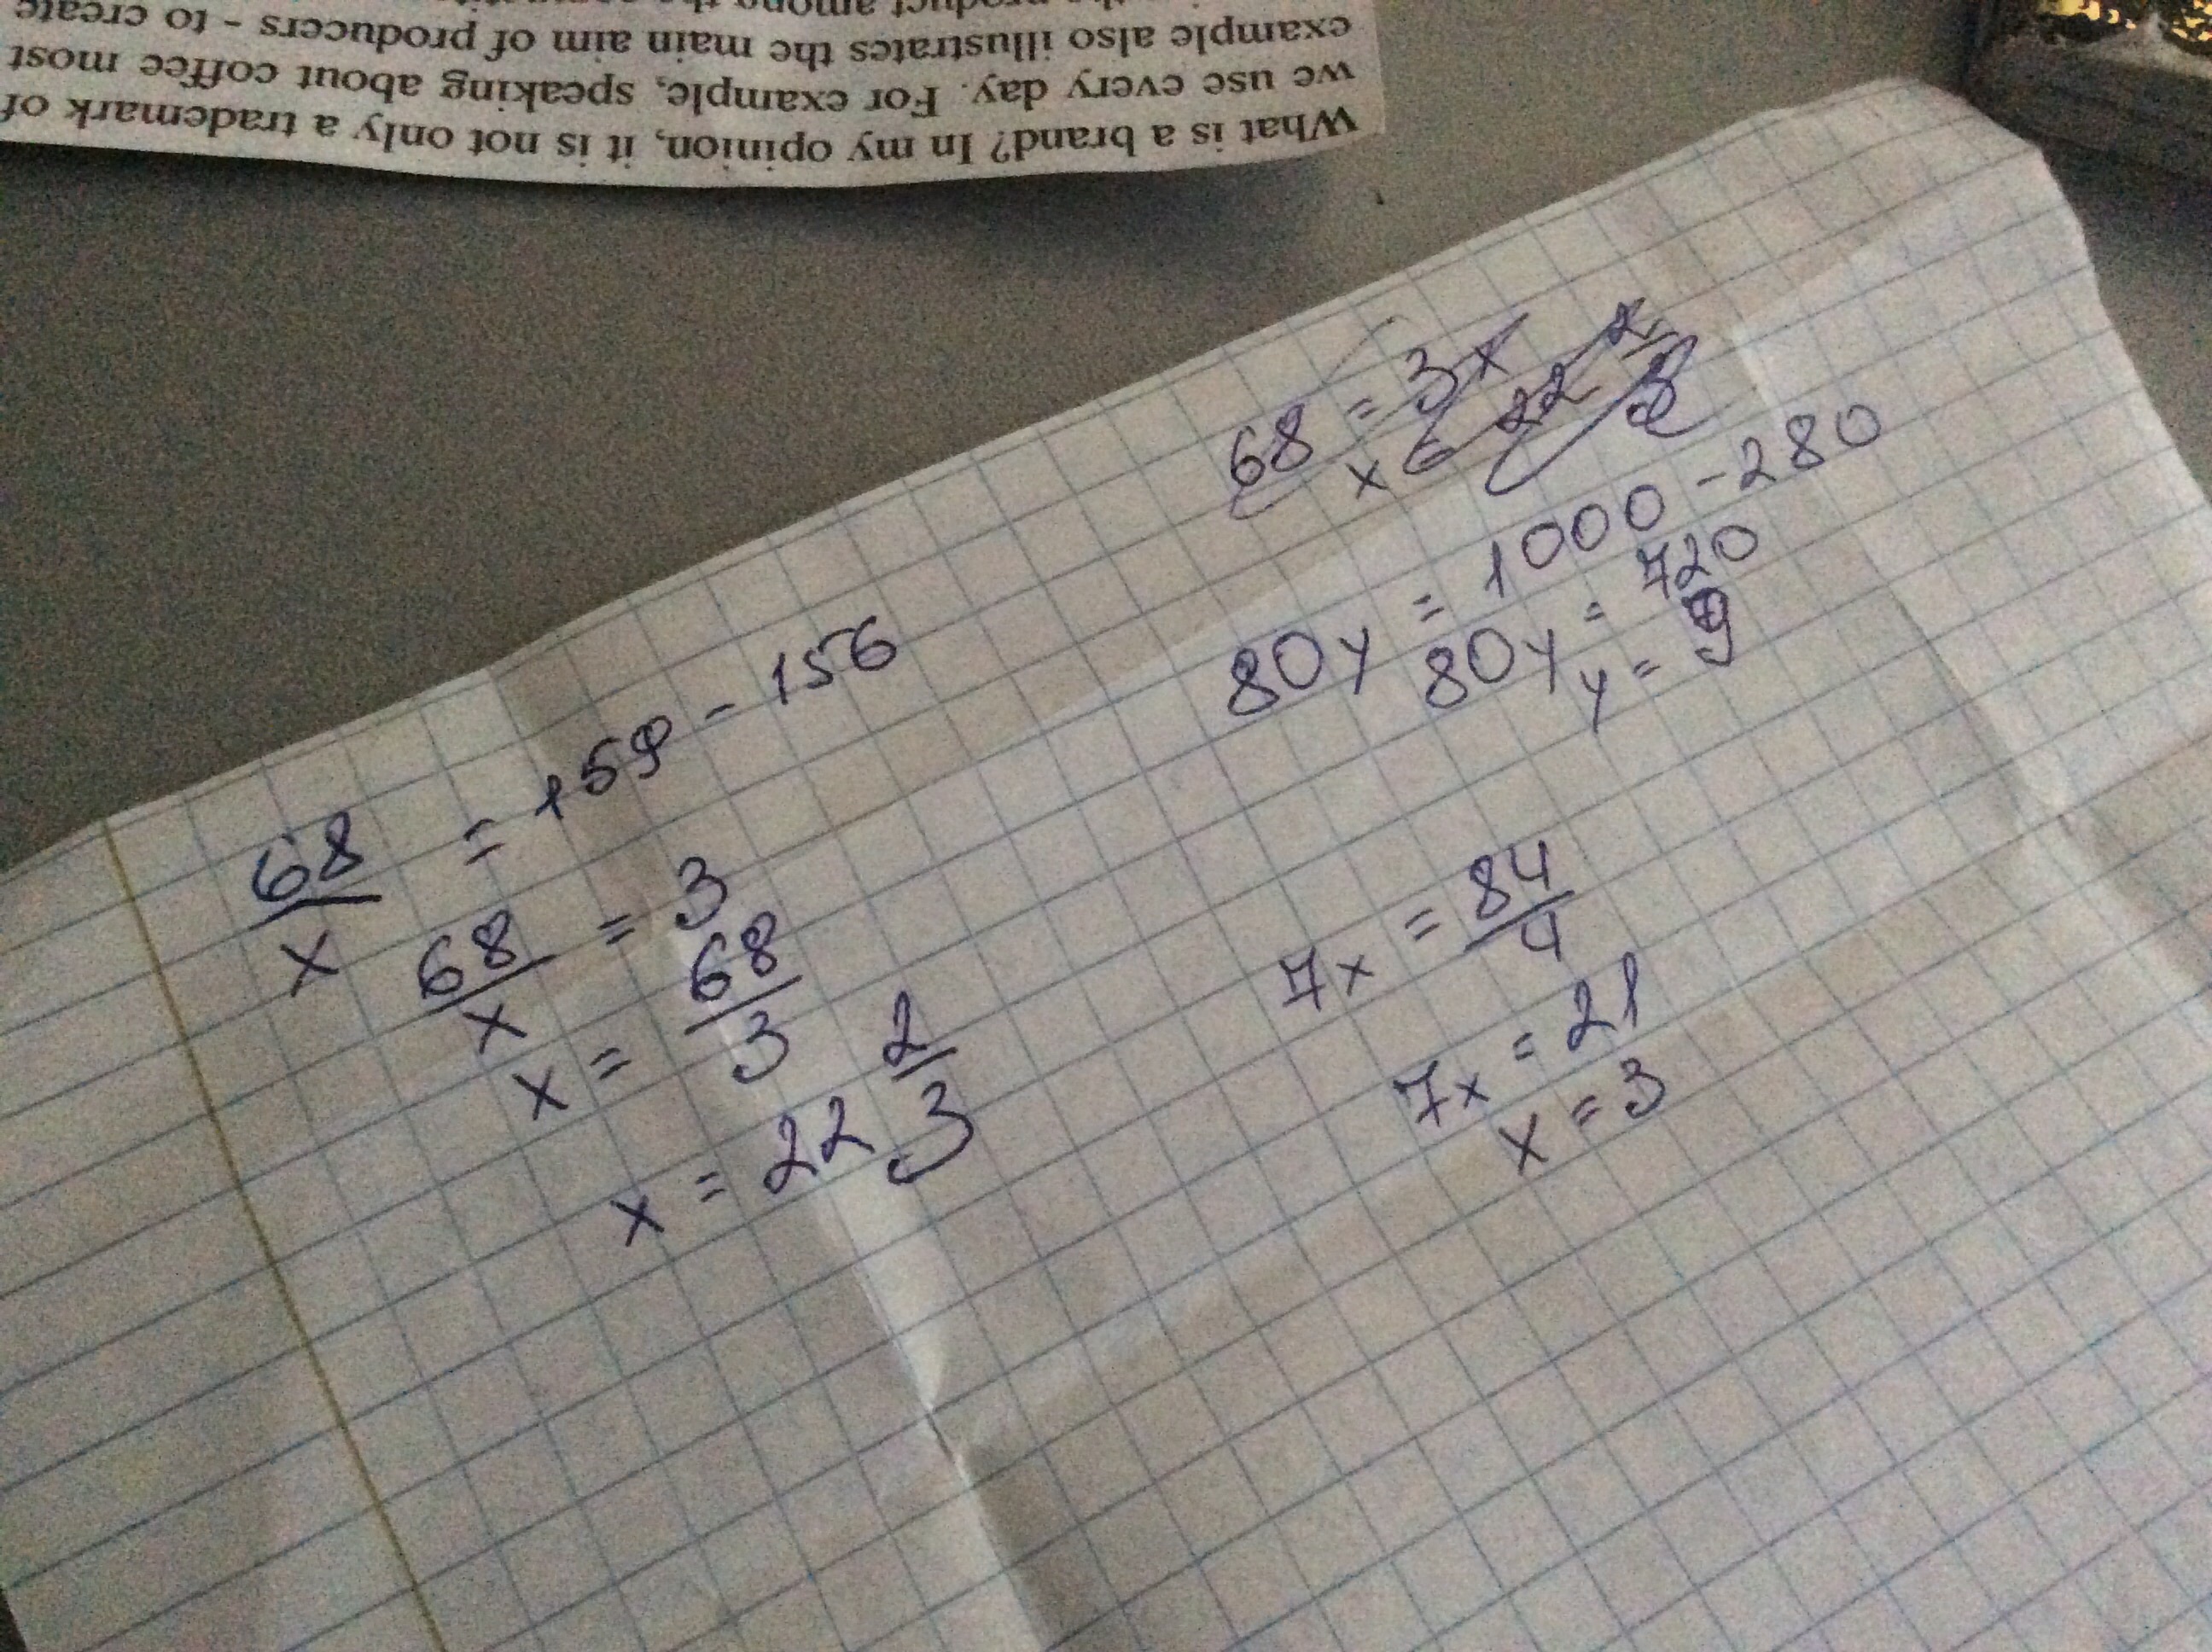 What is a brand? In my opinion, it is not only a trademark of
we use every day. For example, speaking about coffee most
example also illustrates the main aim of producers - to create
product among the
68/x = 159 - 156
68/x = 3
x = 68/3
x = 22 2/3
68 = 3x
x = 22 2/3
80y = 1000 - 280
80y = 720
y = 9
7x = 84/4
7x = 21
x = 3